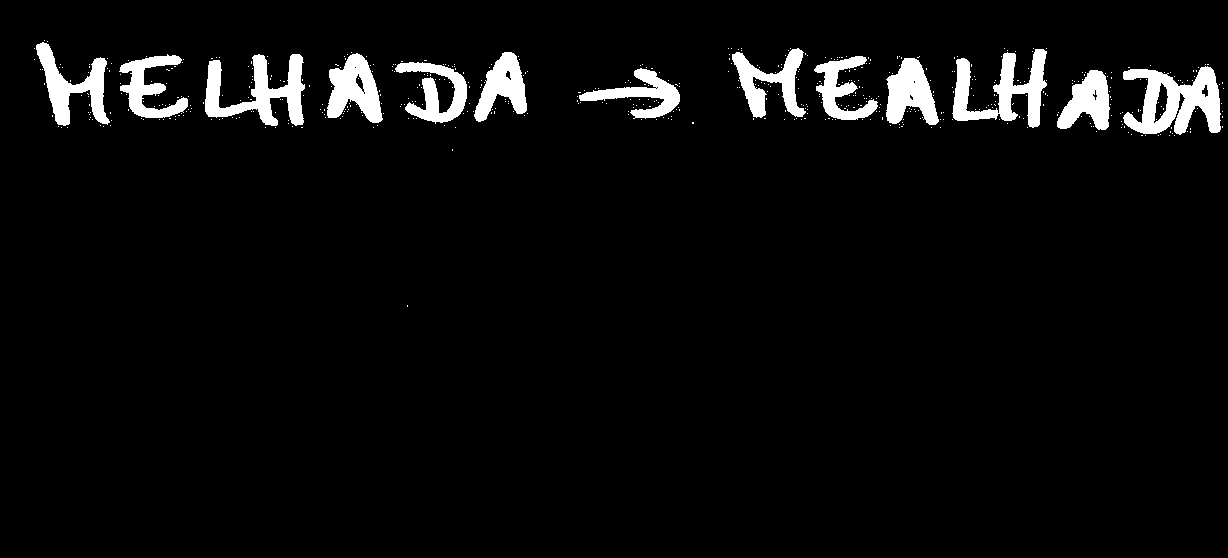 MELHADA → MEALHADA